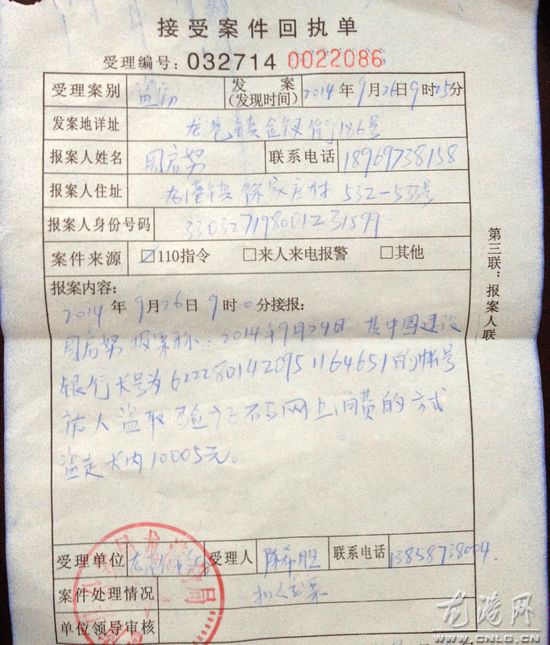 接受案件回执单
受理编号: 032714 0022086
受理案别 盗窃 发案(发现时间) 2014年9月26日9时25分
发案地详址 龙港镇金钗街186号
报案人姓名 周启努 联系电话 18969738158
报案人住址 龙港镇 532-533号
报案人身份号码 330327198001231599
案件来源 ☑110指令 □来人来电报警 □其他
报案内容:
2014年9月26日9时0分接报:
周启努报案称:2014年9月24日 其中国建设
银行卡号为6222801420951164651的帐号
被人盗取验证码网上消费的方式
盗走卡内10005元。
受理单位 受理人 联系电话 13858738004.
案件处理情况
单位领导审核
第三联:报案人联
龙港网
WWW.CNLG.CN